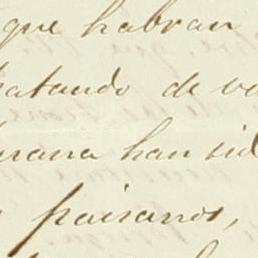 que habran
atando de
han sid
paisanos,